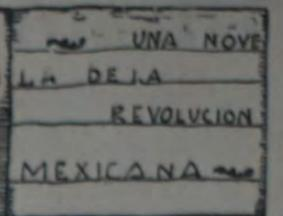 UNA NOVE
LA DE LA
REVOLUCION
MEXICANA